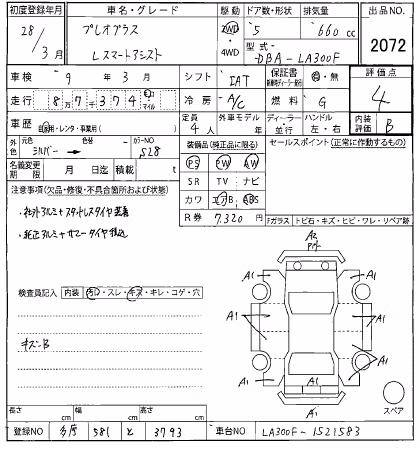 初度登録年月 車名・グレード 駆動 ドア数・形状 排気量 出品NO.
28/3月 プレオプラス Lスマートアシスト 2WD・4WD 5 660cc 2072
型式 -DBA-LA300F
車検 9年3月 シフト IAT 保証書 有・無 評価点
走行 8万7千374 キロ マイル 冷房 A/C 燃料 G 4
車歴 自家用・レンタ・事業用( ) 定員 4人 外車モデル 年 ディーラー・並行 ハンドル 左・右 内装評価 B
外色 元色 シルバー 色替 カラーNO S28 装備品(純正品に限る) セールスポイント(正常に作動するもの)
名義変更期限 月 日迄 積載 t PS PW AW
注意事項(欠品・修復・不具合箇所および状態) SR TV ナビ
カワ エアB ABS
R券 7,320円
・純正アルミ+サマータイヤ積込
Fガラス トビ石・キズ・ヒビ・ワレ・リペア跡
A2
A1 A1
A1 A1
A1 A1
A1
A1
検査員記入 内装 ヨゴレ・スレ・キズ・キレ・コゲ・穴
キズB
スペア
長さ cm 幅 cm 高さ cm
登録NO 多摩 581 と 3793 車台NO LA300F-1521583